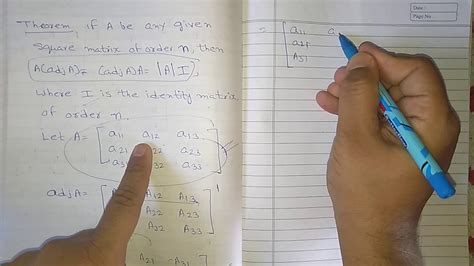 Theorem, if A be any given
square matrix of order n, then
A(adj A) = (adj A)A = |A|I,
where I is the identity matrix
of order n.
Let A = [ a11 a12 a13
a21 a22 a23
a32 a33 ]
adj A = [ A12 A13
A22 A23
A32 A33 ]
A21 A31
= [ a11
a21
A31
Date :
Page No. :